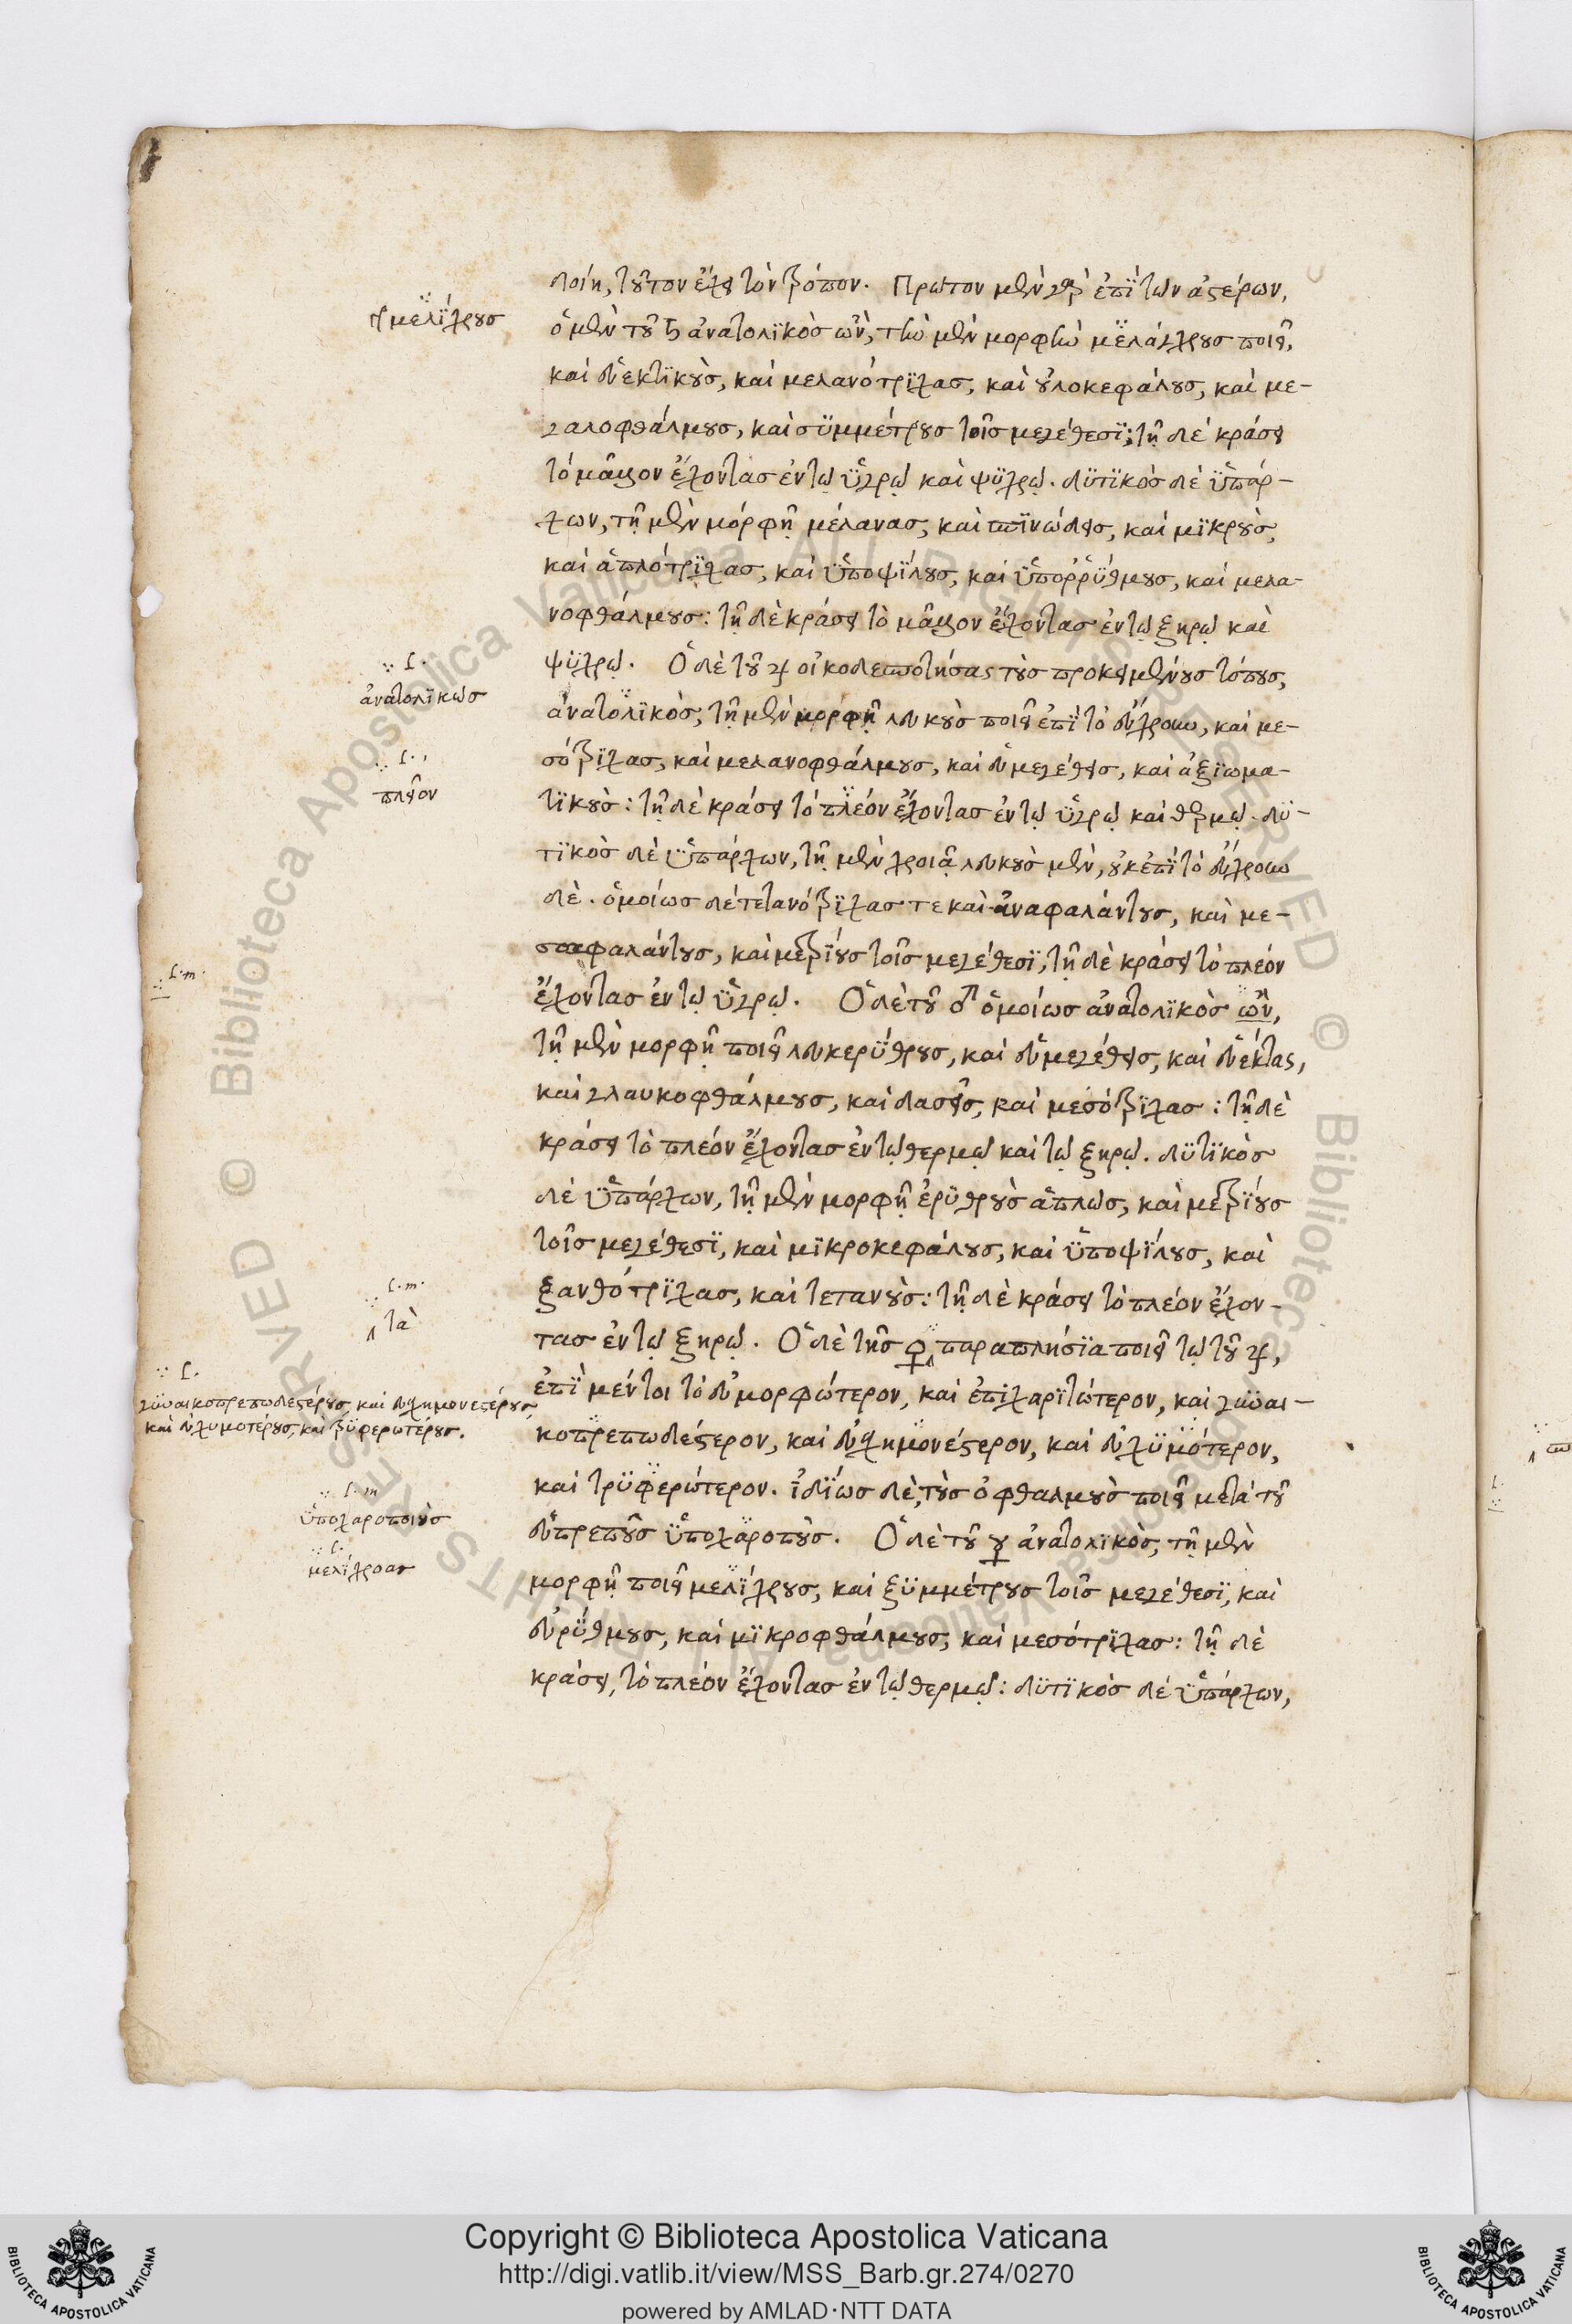 δοίη, τοῦτον ἔχει τὸν τρόπον. Πρῶτον μὲν γὰρ ἐπὶ τῶν ἀστέρων,
ὁ μὲν τοῦ ♄ ἀνατολικὸς ὢν, τὴν μὲν μορφὴν μελάγχρους ποιεῖ,
καὶ εὐεκτικοὺς, καὶ μελανότριχας, καὶ οὐλοκεφάλους, καὶ με-
γαλοφθάλμους, καὶ συμμέτρους τοῖς μεγέθεσι; τῇ δὲ κράσει
τὸ μᾶλλον ἔχοντας ἐν τῷ ὑγρῷ καὶ ψυχρῷ. δυτικὸς δὲ ὑπάρ-
χων, τῇ μὲν μορφῇ μέλανας, καὶ σπινώδεις, καὶ μικροὺς,
καὶ ἁπλότριχας, καὶ ὑποψίλους, καὶ ὑποῤῥύθμους, καὶ μελα-
νοφθάλμους: τῇ δὲ κράσει τὸ μᾶλλον ἔχοντας ἐν τῷ ξηρῷ καὶ
ψυχρῷ. Ὁ δὲ τοῦ ♃ οἰκοδεσποτήσας τοὺς προκειμένους τόπους,
ἀνατολικὸς, τῇ μὲν μορφῇ λευκοὺς ποιεῖ ἐπὶ τὸ εὔχρουν, καὶ με-
σότριχας, καὶ μελανοφθάλμους, καὶ εὐμεγέθεις, καὶ ἀξιωμα-
τικοὺς: τῇ δὲ κράσει τὸ πλέον ἔχοντας ἐν τῷ ὑγρῷ καὶ θερμῷ. δυ-
τικὸς δὲ ὑπάρχων, τῇ μὲν χροιᾷ λευκοὺς μὲν, οὐκ ἐπὶ τὸ εὔχρουν
δὲ. ὁμοίως δὲ τετανότριχας τε καὶ ἀναφαλάντους, καὶ με-
σοφαλάντους, καὶ μετρίους τοῖς μεγέθεσι, τῇ δὲ κράσει τὸ πλέον
ἔχοντας ἐν τῷ ὑγρῷ. Ὁ δὲ τοῦ ♂ ὁμοίως ἀνατολικὸς ὢν,
τῇ μὲν μορφῇ ποιεῖ λευκερύθρους, καὶ εὐμεγέθεις, καὶ εὐέκτας,
καὶ γλαυκοφθάλμους, καὶ δασεῖς, καὶ μεσότριχας: τῇ δὲ
κράσει τὸ πλέον ἔχοντας ἐν τῷ θερμῷ καὶ τῷ ξηρῷ. δυτικὸς
δὲ ὑπάρχων, τῇ μὲν μορφῇ ἐρυθροὺς ἁπλῶς, καὶ μετρίους
τοῖς μεγέθεσι, καὶ μικροκεφάλους, καὶ ὑποψίλους, καὶ
ξανθότριχας, καὶ τετανοὺς: τῇ δὲ κράσει τὸ πλέον ἔχον-
τας ἐν τῷ ξηρῷ. Ὁ δὲ τῆς ♀ παραπλησία ποιεῖ τῷ τοῦ ♃,
ἐπὶ μέντοι τὸ εὐμορφώτερον, καὶ ἐπιχαριτώτερον, καὶ γυναι-
κοπρεπωδέστερον, καὶ εὐσχημονέστερον, καὶ εὐχυμότερον,
καὶ τρυφερώτερον. ἰδίως δὲ, τοὺς ὀφθαλμοὺς ποιεῖ μετὰ τοῦ
εὐπρεποῦς ὑποχαροποὺς. Ὁ δὲ τοῦ ☿ ἀνατολικὸς, τῇ μὲν
μορφῇ ποιεῖ μελίχρους, καὶ ξυμμέτρους τοῖς μεγέθεσι, καὶ
εὐρύθμους, καὶ μικροφθάλμους, καὶ μεσότριχας: τῇ δὲ
κράσει, τὸ πλέον ἔχοντας ἐν τῷ θερμῷ: δυτικὸς δὲ ὑπάρχων,
μελίχρους
L.
ἀνατολικῶς
L.
πλεῖον
L.m.
L.m.
τὰ
L.
γυναικοπρεπωδεστέρους, καὶ εὐσχημονεστέρους,
καὶ εὐχυμοτέρους, καὶ τρυφερωτέρους.
L.m
ὑποχαροποιοὺς
L.
μελίχροας
Copyright © Biblioteca Apostolica Vaticana
http://digi.vatlib.it/view/MSS_Barb.gr.274/0270
powered by AMLAD·NTT DATA
BIBLIOTECA APOSTOLICA VATICANA
BIBLIOTECA APOSTOLICA VATICANA